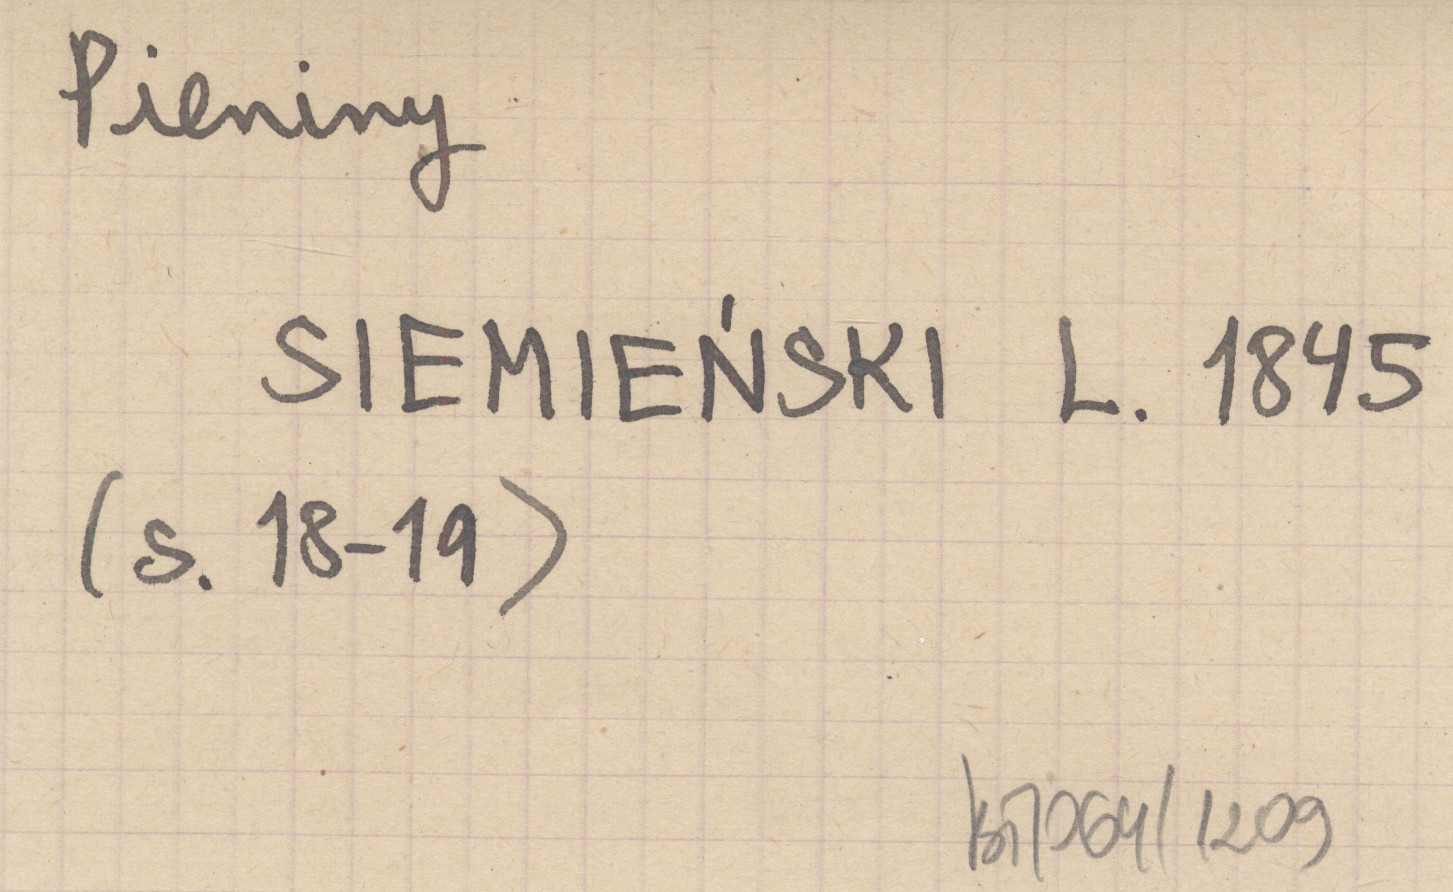 Pieniny
SIEMIEŃSKI L. 1845
(s. 18-19)
1209